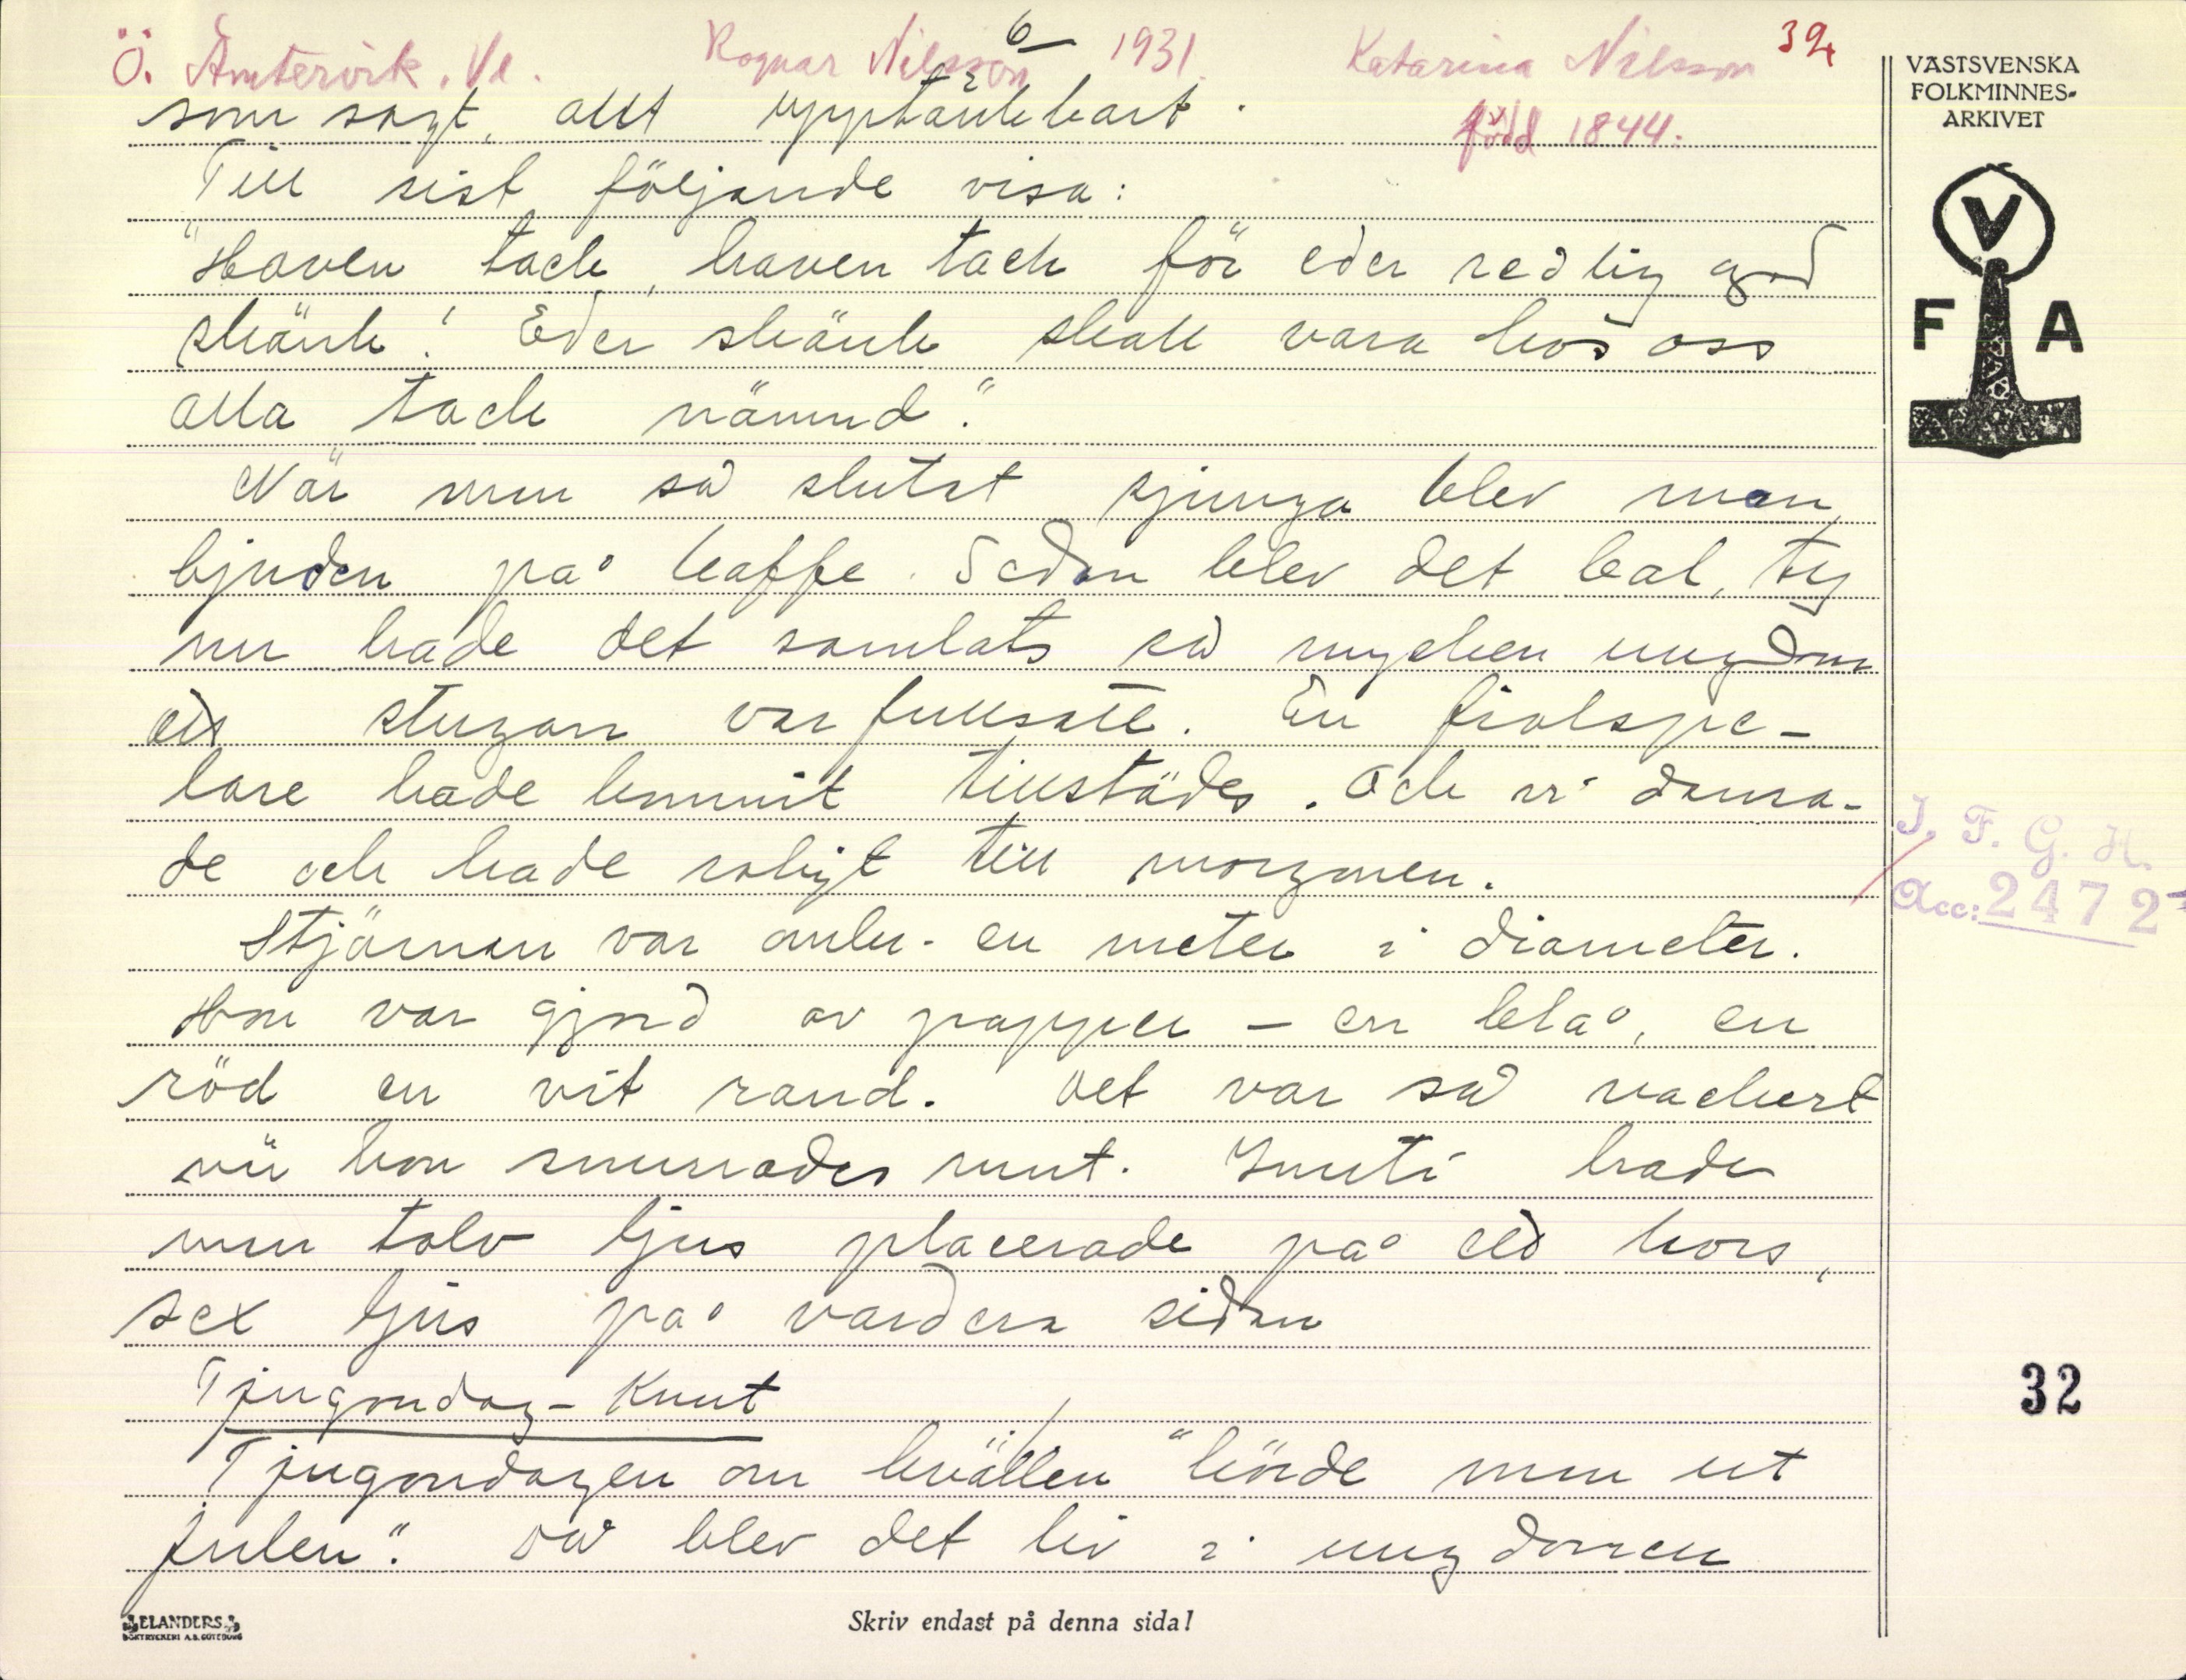 6
Ö. Ämtervik. Vl. Ragnar Nilsson 1931. Katarina Nilsson 32
född 1844.
VÄSTSVENSKA
FOLKMINNES-
ARKIVET
V
F A
som sagt, allt upptänkbart.
Till sist följande visa:
"Haven tack, haven tack för eder redlig god
skänk! Eder skänk skall vara hos oss
alla tack nämnd."
När man så slutat sjunga blev man
bjuden på kaffe. Sedan blev det bal, ty
nu hade det samlats så mycken ungdom
att stugan var fullsatt. En fiolspe-
lare hade kommit tillstädes. Och vi dansa-
de och hade roligt till morgonen.
Stjärnan var omkr. en meter i diameter.
Hon var gjord av papper – en blå, en
röd en vit rand. Det var så vackert
när hon snurrades runt. Inuti hade
man tolv ljus placerade på ett kors,
sex ljus på vardera sidan
Tjugondag-Knut
Tjugondagen om kvällen "körde man ut
julen". Då blev det liv i ungdomen
I. F. G. H.
Acc: 2472
32
ELANDERS
BOKTRYCKERI A.B. GÖTEBORG
Skriv endast på denna sida!